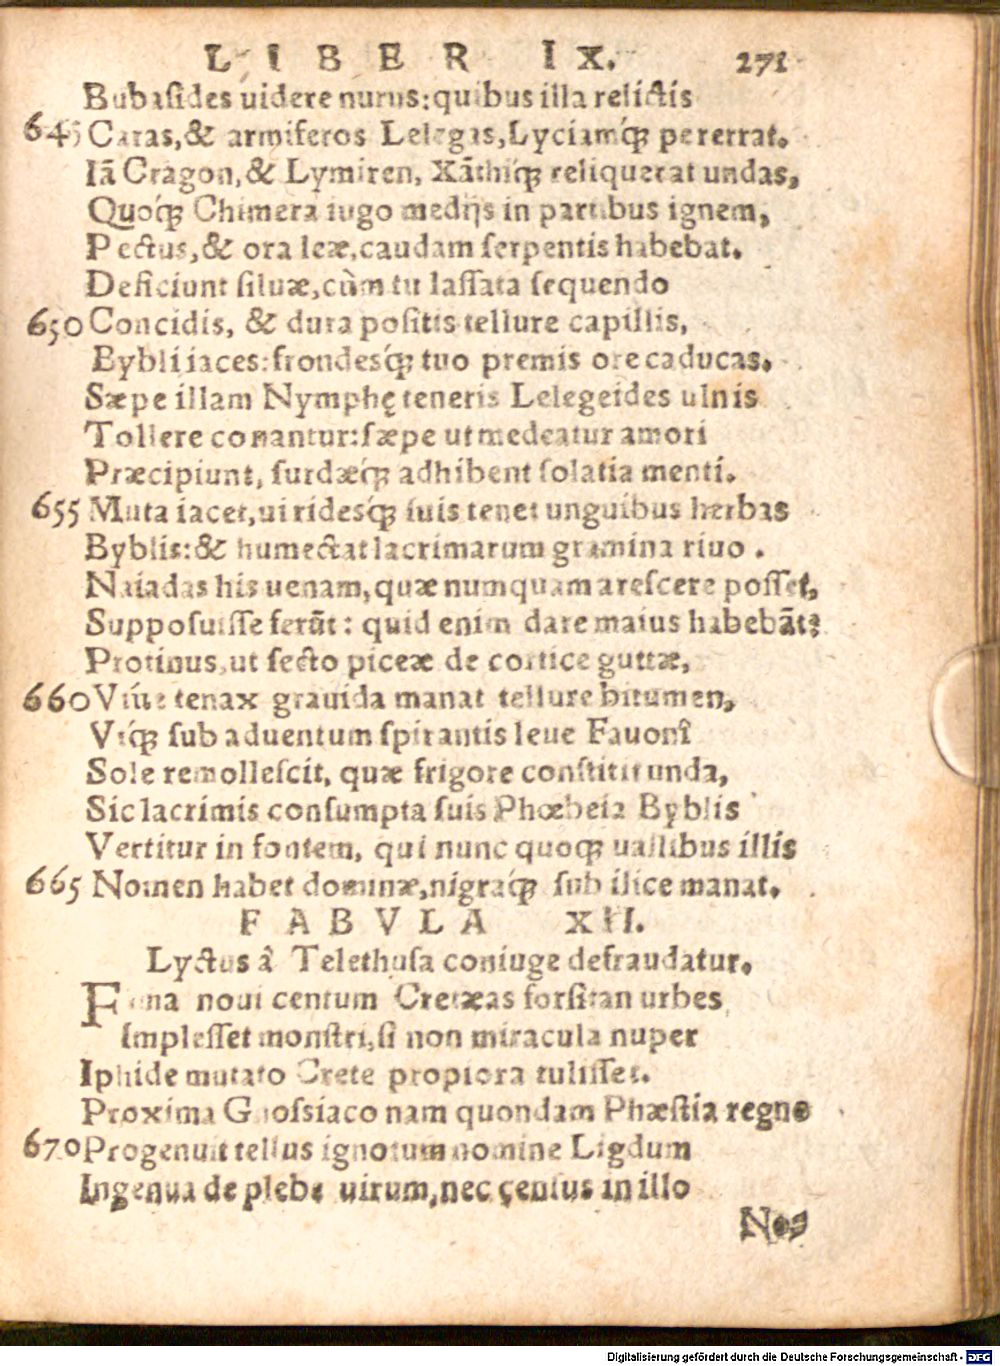 LIBER IX. 271
Bubaſides uidere nurus: quibus illa relictis
645 Caras, & armiferos Lelegas, Lyciamq́ꝫ pererrat.
Iā Cragon, & Lymiren, Xāthiq́ꝫ reliquerat undas,
Quoq́ꝫ Chimera iugo medijs in partibus ignem,
Pectus, & ora leæ, caudam ſerpentis habebat.
Deficiunt ſiluæ, cùm tu laſſata ſequendo
650 Concidis, & dura poſitis tellure capillis,
Bybli iaces: frondesq́ꝫ tuo premis ore caducas.
Sæpe illam Nymphę teneris Lelegeides ulnis
Tollere conantur: ſæpe ut medeatur amori
Præcipiunt, ſurdæq́ꝫ adhibent ſolatia menti.
655 Muta iacet, uiridesq́ꝫ ſuis tenet unguibus herbas
Byblis: & humectat lacrimarum gramina riuo.
Naiadas his uenam, quæ numquam areſcere poſſet,
Suppoſuiſſe ferūt: quid enim dare maius habebāt?
Protinus, ut ſecto piceæ de cortice guttæ,
660 Vt́ue tenax grauida manat tellure bitumen,
Vtq́ꝫ ſub aduentum ſpirantis leue Fauonî
Sole remolleſcit, quæ frigore conſtitit unda,
Sic lacrimis conſumpta ſuis Phœbeia Byblis
Vertitur in fontem, qui nunc quoqꝫ uallibus illis
665 Nomen habet dominæ, nigraq́ꝫ ſub ilice manat.
FABVLA XII.
Lyctus â Telethuſa coniuge defraudatur.
Fama noui centum Cretæas forſitan urbes
Impleſſet monſtri, ſi non miracula nuper
Iphide mutato Crete propiora tuliſſet.
Proxima Gnoſsiaco nam quondam Phæſtia regno
670 Progenuit tellus ignotum nomine Ligdum
Ingenua de plebe uirum, nec çenſus in illo
Nos
Digitalisierung gefördert durch die Deutsche Forschungsgemeinschaft - DFG